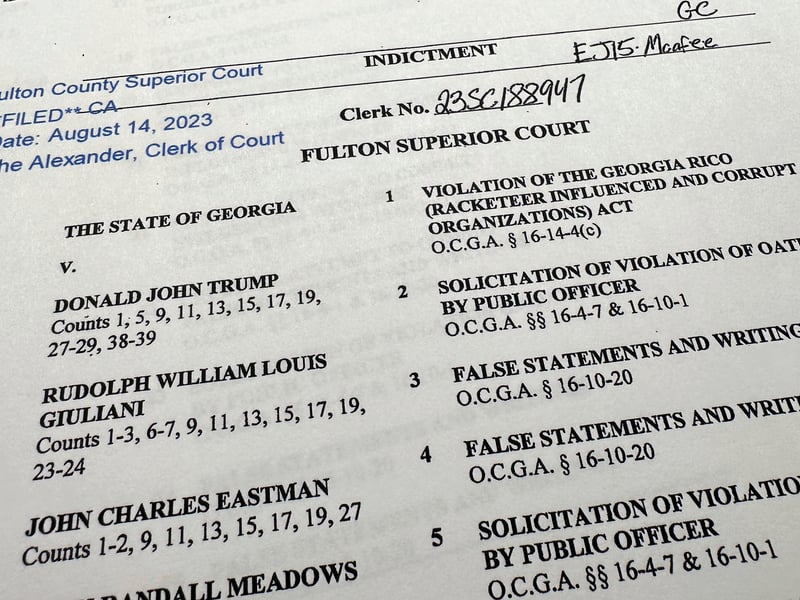 GC
INDICTMENT
EJ15. McAfee
Fulton County Superior Court
*FILED** CA
Date: August 14, 2023
Che Alexander, Clerk of Court
Clerk No. 23SC188947
FULTON SUPERIOR COURT
THE STATE OF GEORGIA
v.
DONALD JOHN TRUMP
Counts 1, 5, 9, 11, 13, 15, 17, 19,
27-29, 38-39
RUDOLPH WILLIAM LOUIS
GIULIANI
Counts 1-3, 6-7, 9, 11, 13, 15, 17, 19,
23-24
JOHN CHARLES EASTMAN
Counts 1-2, 9, 11, 13, 15, 17, 19, 27
RANDALL MEADOWS
1 VIOLATION OF THE GEORGIA RICO
(RACKETEER INFLUENCED AND CORRUPT
ORGANIZATIONS) ACT
O.C.G.A. § 16-14-4(c)
2 SOLICITATION OF VIOLATION OF OATH
BY PUBLIC OFFICER
O.C.G.A. §§ 16-4-7 & 16-10-1
3 FALSE STATEMENTS AND WRITING
O.C.G.A. § 16-10-20
4 FALSE STATEMENTS AND WRITI
O.C.G.A. § 16-10-20
5 SOLICITATION OF VIOLATIO
BY PUBLIC OFFICER
O.C.G.A. §§ 16-4-7 & 16-10-1